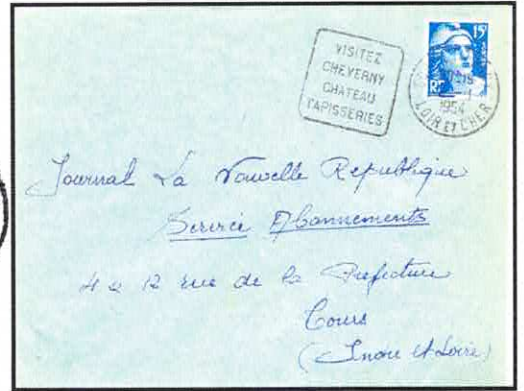 VISITEZ
CHEVERNY
CHATEAU
TAPISSERIES
15F
RF
1954
LOIR ET CHER
Journal La Nouvelle Republique
Service Abonnements
4 a 12 rue de la Prefecture
Tours
(Indre et Loire)